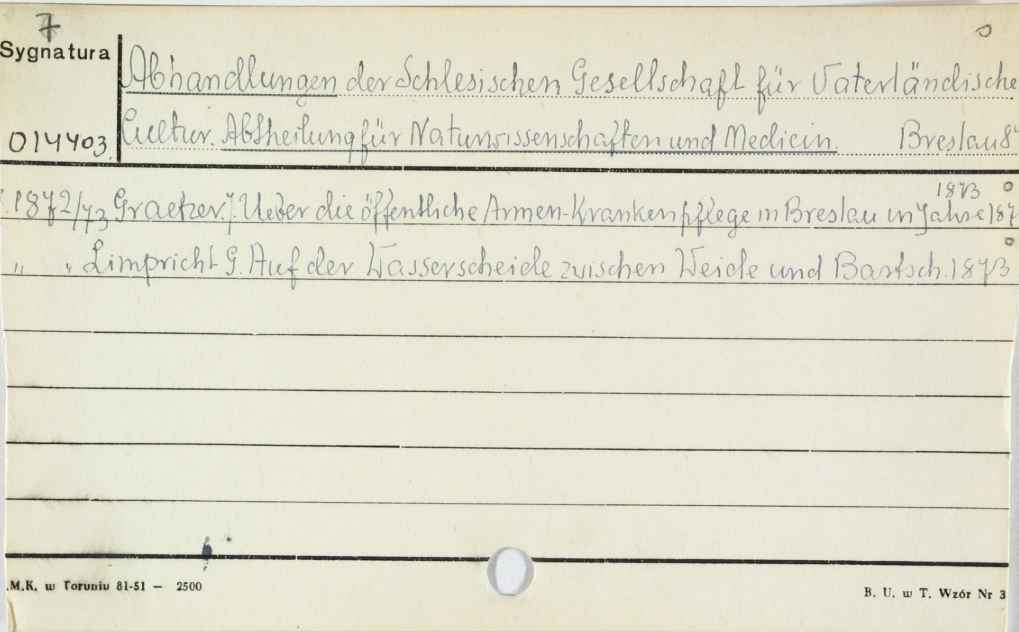 7
Sygnatura
Abhandlungen der Schlesischen Gesellschaft für Vaterländische
014403
Cultur. Abtheilung für Naturwissenschaften und Medicin. Breslau 8°
1873
1872/73 Graetzer J. Ueber die öffentliche Armen-Krankenpflege in Breslau im Jahre 187
" " Limpricht G. Auf der Wasserscheide zwischen Weide und Bartsch. 1873
.M.K. w Toruniu 81-51 — 2500
B. U. w T. Wzór Nr 3